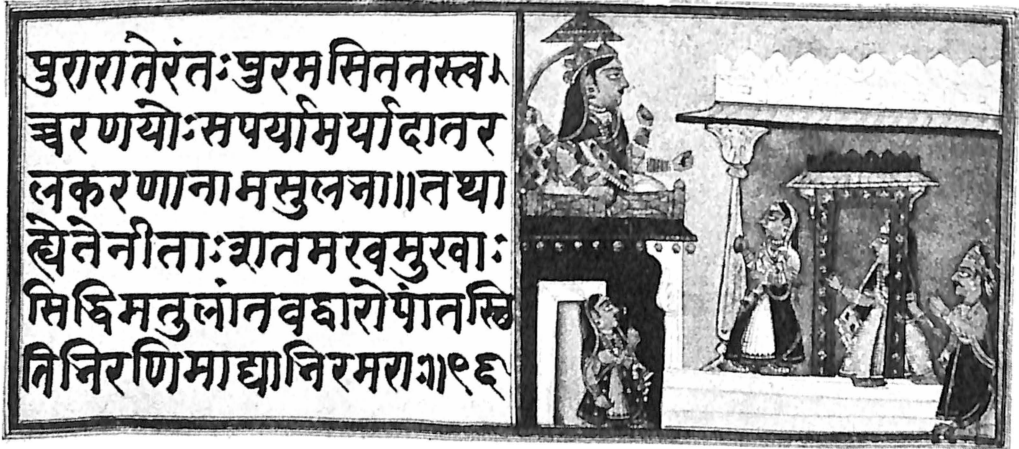 पुरारातेरंतःपुरमसिततस्त्व।
च्चरणयोःसपर्यामर्यादातर
लकरणानामसुलभा॥तथा
ह्येतेनीताःशतमखमुखाः
सिद्धिमतुलांतवद्वारोपांतस्थि
तिभिरणिमाद्याभिरमराः॥९६